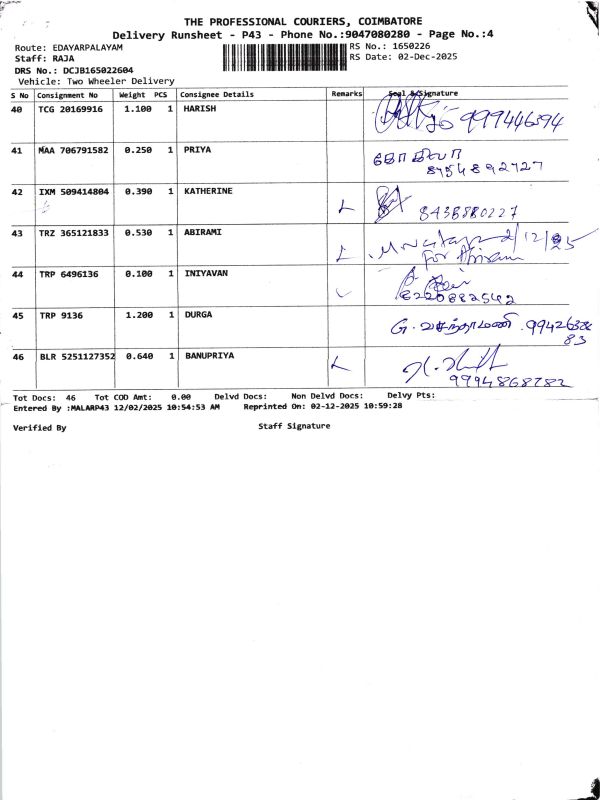 THE PROFESSIONAL COURIERS, COIMBATORE
Delivery Runsheet - P43 - Phone No.:9047080280 - Page No.:4
Route: EDAYARPALAYAM RS No.: 1650226
Staff: RAJA RS Date: 02-Dec-2025
DRS No.: DCJB165022604
Vehicle: Two Wheeler Delivery
S No Consignment No Weight PCS Consignee Details Remarks Seal & Signature
40 TCG 20169916 1.100 1 HARISH 9994446394
41 MAA 706791582 0.250 1 PRIYA கோகிலா
8754892727
42 IXM 509414804 0.390 1 KATHERINE 8438880227
43 TRZ 365121833 0.530 1 ABIRAMI 2/12/25
for Abirami
44 TRP 6496136 0.100 1 INIYAVAN
6220882542
45 TRP 9136 1.200 1 DURGA G. வசந்தாமணி. 99426386
83
46 BLR 5251127352 0.640 1 BANUPRIYA
9994868782
Tot Docs: 46 Tot COD Amt: 0.00 Delvd Docs: Non Delvd Docs: Delvy Pts:
Entered By :MALARP43 12/02/2025 10:54:53 AM Reprinted On: 02-12-2025 10:59:28
Verified By Staff Signature